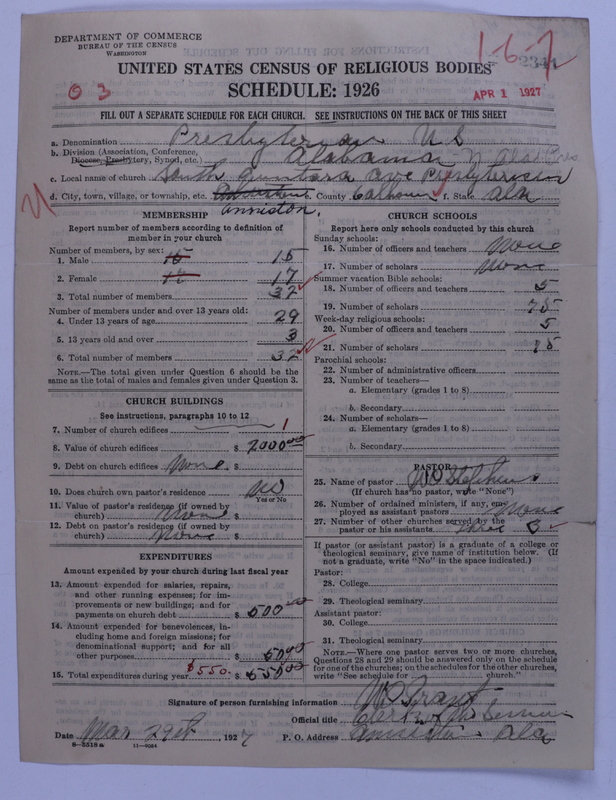 DEPARTMENT OF COMMERCE
BUREAU OF THE CENSUS
WASHINGTON
1-6-7
2344
UNITED STATES CENSUS OF RELIGIOUS BODIES
03
SCHEDULE: 1926
APR 1 1927
FILL OUT A SEPARATE SCHEDULE FOR EACH CHURCH. SEE INSTRUCTIONS ON THE BACK OF THIS SHEET
a. Denomination Presbyterian U S
b. Division (Association, Conference, Diocese, Presbytery, Synod, etc.) Alabama
c. Local name of church South Quintard Ave Presbyterian
d. City, town, village, or township, etc. Anniston, County Calhoun f. State Ala
MEMBERSHIP
Report number of members according to definition of
member in your church
Number of members, by sex:
1. Male 15 15
2. Female 17
3. Total number of members 32
Number of members under and over 13 years old:
4. Under 13 years of age 29
5. 13 years old and over 3
6. Total number of members 32
NOTE.—The total given under Question 6 should be the
same as the total of males and females given under Question 3.
CHURCH BUILDINGS
See instructions, paragraphs 10 to 12
7. Number of church edifices 1
8. Value of church edifices $ 2000.00
9. Debt on church edifices None $
10. Does church own pastor's residence NO
Yes or No
11. Value of pastor's residence (if owned by
church) None $
12. Debt on pastor's residence (if owned by
church) None $
EXPENDITURES
Amount expended by your church during last fiscal year
13. Amount expended for salaries, repairs,
and other running expenses; for im-
provements or new buildings; and for
payments on church debt $ 500.00
14. Amount expended for benevolences, in-
cluding home and foreign missions; for
denominational support; and for all
other purposes $ 50.00
15. Total expenditures during year $550. $ 550.00
CHURCH SCHOOLS
Report here only schools conducted by this church
Sunday schools:
16. Number of officers and teachers None
17. Number of scholars None
Summer vacation Bible schools:
18. Number of officers and teachers 5
19. Number of scholars 75
Week-day religious schools:
20. Number of officers and teachers 5
21. Number of scholars
Parochial schools:
22. Number of administrative officers
23. Number of teachers—
a. Elementary (grades 1 to 8)
b. Secondary
24. Number of scholars—
a. Elementary (grades 1 to 8)
b. Secondary
PASTOR
25. Name of pastor W O Stephens
(If church has no pastor, write "None")
26. Number of ordained ministers, if any, em-
ployed as assistant pastors None
27. Number of other churches served by the
pastor or his assistant 3
If pastor (or assistant pastor) is a graduate of a college or
theological seminary, give name of institution below. (If
not a graduate, write "No" in the space indicated.)
Pastor:
28. College
29. Theological seminary
Assistant pastor:
30. College
31. Theological seminary
NOTE.—Where one pastor serves two or more churches,
Questions 28 and 29 should be answered only on the schedule
for one of the churches; on the schedules for the other churches,
write "See schedule for church."
Signature of person furnishing information W O Grant
Official title Clerk of the Session
Date Mar 29th, 1927 P. O. Address Anniston Ala
8—5518 a 11—9034